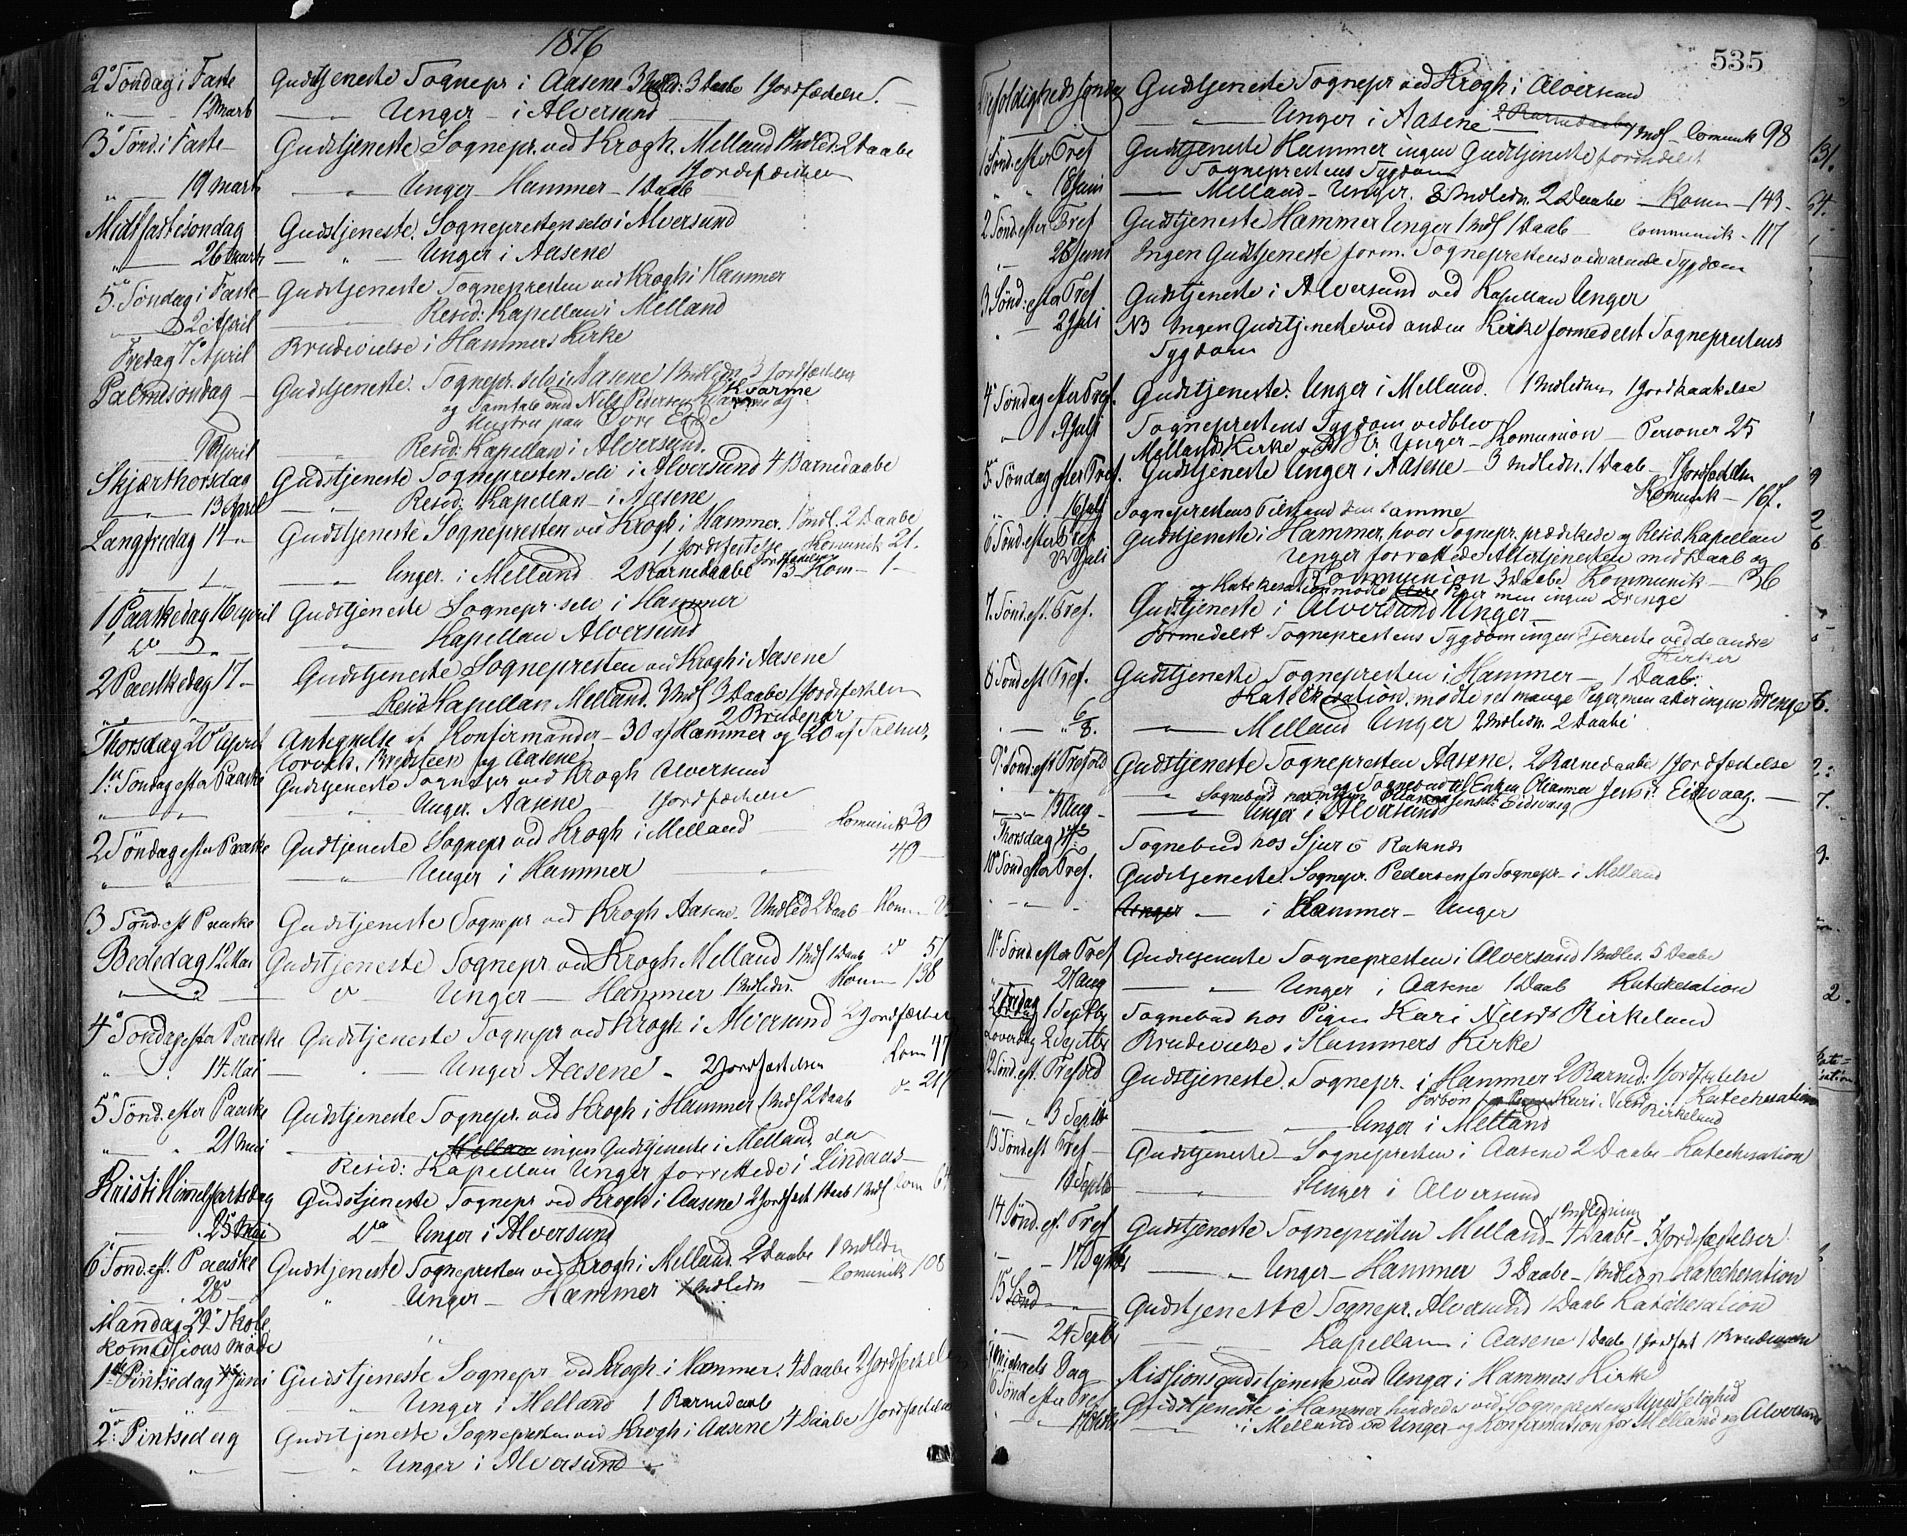 1876
2den Søndag i Faste Gudstjeneste Sognepr i Aasene 3 Indl: 3 Daabe 1 Jordfæstelse.
" — 12 Marts — — Unger — i Alversund
3die Sønd. i Faste — Gudstjeneste Sognepr. ved Krogh. Melland 1 Indled. 2 Daabe
1 Jordfæstelse
" — 19 Marts — " Unger — Hammer — 1 Daab
Midtfastesøndag Gudstjeneste. Sognepresten selv i Alversund
" — 26 Marts — " — Unger i Aasene
5te Søndag i Faste — Gudstjeneste Sognepresten ved Krogh i Hammer
2 April Resid: Kapellan i Melland
Fredag 7de April Brudevielse i Hammers Kirke
Palmesøndag — Gudstjeneste. Sognepr. selv i Aasene 1 Indledn. 3 Jordfæstelser
og Samtale med Nils Pedersen Kvarme og
Hustru paa Øvre Eide
9 April Resid: Kapellan i Alversund.
Skjærthorsdag Gudstjeneste Sognepresten selv i Alversund 4 Barnedaabe
" 13 April — " Resid: Kapellan — i Aasene
Langfredag 14 — Gudstjeneste Sognepresten ved Krogh i Hammer. 1 Indl. 2 Daabe
1 Jordfæstelse Komunik 21.
— Unger. i Melland 2 Barnedaabe 3 Jordfæstelser Kom — 1 —
1 Paaskedag 16 April Gudstjeneste Sognepr. selv i Hammer
do — Kapellan Alversund
2 Paaskedag 17 — Gudstjeneste Sognepresten ved Krogh i Aasene
Resid Kapellan Melland. 3 Indl 3 Daabe 1 Jordfæstelse
2 Brudepar
Thorsdag 20de April Antegnelse af Konfirmander — 30 af Hammer og 20 af
og Aasene
1ste Søndag efter Paaske Gudstjeneste Sognepr ved Krogh Alversund
" Unger. Aasene 1 Jordfæstelse
2 Søndag efter Paaske Gudstjeneste Sognepr ved Krogh i Melland — Comunik 30
" " Unger i Hammer 49 —
3 Sønd. eft Paaske Gudstjeneste Sognepr ved Krogh Aasene. 1 Indled 2 Daab — Kom
Bededag 12 Mai Gudstjeneste Sognepr ved Krogh Melland 1 Indl 1 Daab do 51
do Unger — Hammer 1 Indledn. Kom 138
4de Søndag efter Paaske Gudstjeneste Sognepr ved Krogh i Alversund 2 Jordfæstelser
" 14 Mai — " — Unger Aasene — 2 Jordfæstelser Com 47
5te Sønd. efter Paaske Gudstjeneste Sognepr. ved Krogh i Hammer 1 Indl 2 Daab
" 21 Mai ingen Gudstjeneste i Melland, da
Resid: Kapellan Unger forrettede i Lindaas —
Kristi Himelfartsdag Gudstjeneste Sognepr ved Krogh i Aasene 2 Jordfæst 1 Daab 1 Indl Com
25 Mai do Unger i Alversund
6te Sønd. eft. Paaske Gudstjeneste Sognepresten ved Krogh i Melland. 2 Daabe 1 Indledn
" 28 — " Unger — Hammer 1 Indledn — Comunik 108
Mandag 29de Skole
komissions møde
1ste Pintsedag 4 Juni Gudstjeneste Sognepr ved Krogh i Hammer. 4 Daabe 2 Jordfæstelser
— " Unger i Melland 1 Barnedaab
2den Pintsedag Gudstjeneste Sognepresten ved Krogh i Aasene 4 Daabe 1 Jordfæstelse
" — " Unger i Alversund
535
Trefoldigheds søndag Gudstjeneste Sognepr ved Krogh i Alversund
— " Unger i Aasene 2 Barnedaabe 1 Indl — Comunik 98
1 Sønd. efter Tref Gudstjeneste Hammer ingen Gudstjeneste formedelst
" 18 Juni Sogneprestens Sygdom
— Melland — Unger. 8 Indledn. 2 Daabe — Komu — 143 —
2 Sønd. efter Tref Gudstjeneste Hammer Unger 1 Indl 1 Daab — Communik — 117
" 25 Juni Ingen Gudstjeneste form. Sogneprestens vedvarende Sygdom
3 Sønd: efter Tref Gudstjeneste i Alversund ved Kapellan Unger
" 2 Juli NB Ingen Gudstjeneste ved anden Kirke formedelst Sogneprestens
Sygdom
4de Søndag efter Tref. Gudstjeneste. Unger i Melland. 1 Indledn 1 Jordpaakastelse
" 9 Juli Sogneprestens Sygdom vedblev
Melland Kirke Unger — Komunion — Personer 25
5. Søndag efter Tref. Gudstjeneste Unger i Aasene — 3 Indledn. 1 Daab — 1 Jordfæstelse
Komunik — 167.
" 16 Juli Sogneprestens Tilstand den samme
6 Sønd. efter Tref Gudstjeneste i Hammer, hvor Sognepr. prædikede og Resid. Kapellan
" 23 Juli Unger forrettede Altertjenesten med Daab og
Communion 3 Daabe Kommunik — 36
og Katekisation mødte Piger men ingen Drenge
7. Sønd. eft. Tref. Gudstjeneste i Alversund Unger —
Formedelst Sogneprestens Sygdom ingen Tjeneste ved de andre
Kirker
8 Sønd eft Tref. Gudstjeneste Sognepresten i Hammer — 1 Daab.
Katekisation. mødte ret mange Piger, men atter ingen Drenge
" 6/8. — " Melland Unger 2 Indledn. 2 Daabe
9de Sønd. eft Trefold Gudstjeneste Sognepresten Aasene. 2 Barnedaabe 1 Jordfæstelse
Sognebud hos og Sognebud til Enken Olianna Jens: Eidvaag. —
" 13 Aug — — " Unger i Alversund
Thorsdag 17de Sognebud hos Sjur Raknæs
10de Sønd efter Tref. Gudstjeneste. Sognepr. Pedersen for Sognepr — i Melland
Unger — i Hammer — Unger
11te Sønd. efter Tref Gudstjeneste Sognepresten i Alversund 1 Indled. 5 Daabe
27 Aug — " — Unger i Aasene 1 Daab Katekesation
Fredag 1 Septbr Sognebud hos Pigen Kari Nilsd. Birkeland
Løverdag 2 Septbr Brudevielse i Hammers Kirke
12 Sønd. eft. Trefold Gudstjeneste. Sognepr. i Hammer 2 Barned: 1 Jordfæstelse
Forbøn for Pigen Kari Nilsd Birkeland Katechesation
" 3 Septbr — Unger i Melland
13 Sønd eft Tref — Gudstjeneste — Sognepresten i Aasene 2 Daabe — Katechesation
— 10 Septbr — Unger i Alversund
14 Sønd. ef. Tref Gudstjeneste Sognepresten Melland — 1 Indledning 4 Daabe — 3 Jordfæstelser
— 17 Septbr — " Unger — Hammer 3 Daabe — 1 Indledn Katechesation
15 Sønd Gudstjeneste Sognepr. Alversund 1 Daab Katekesation
— 24 Septbr — Kapellan i Aasene 1 Daab 1 Jordfæst 1 Brudevielse
Michaels Dag Missionsgudstjeneste ved Unger i Hammers Kirke
16 Sønd efter Tref Gudstjeneste i Hammer hindredes ved Sogneprestens Upasselighed
" 1 Oktbr — " i Melland ved Unger og Konfirmation for Melland og Alversund